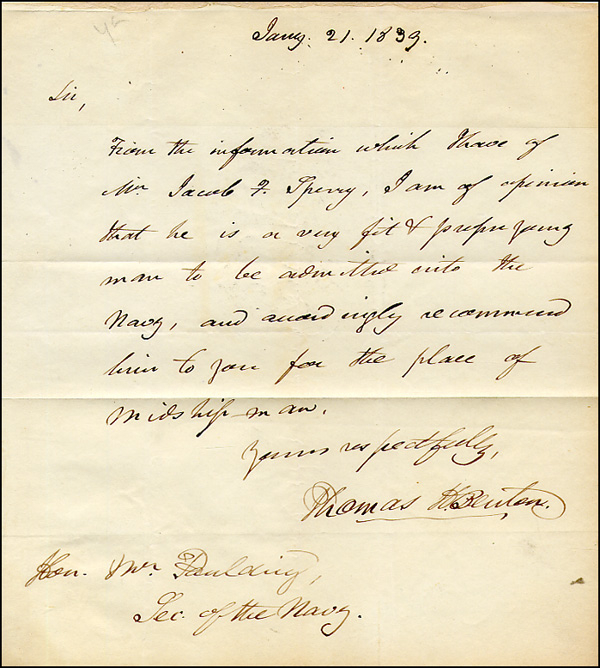 Jany. 21. 1839.
Sir,
From the information which I have of
Mr. Jacob F. Sperry, I am of opinion
that he is a very fit & proper young
man to be admitted into the
Navy, and accordingly recommend
him to you for the place of
midship-man.
Yours respectfully,
Thomas H. Benton.
Hon. Mr. Paulding,
Sec. of the Navy.